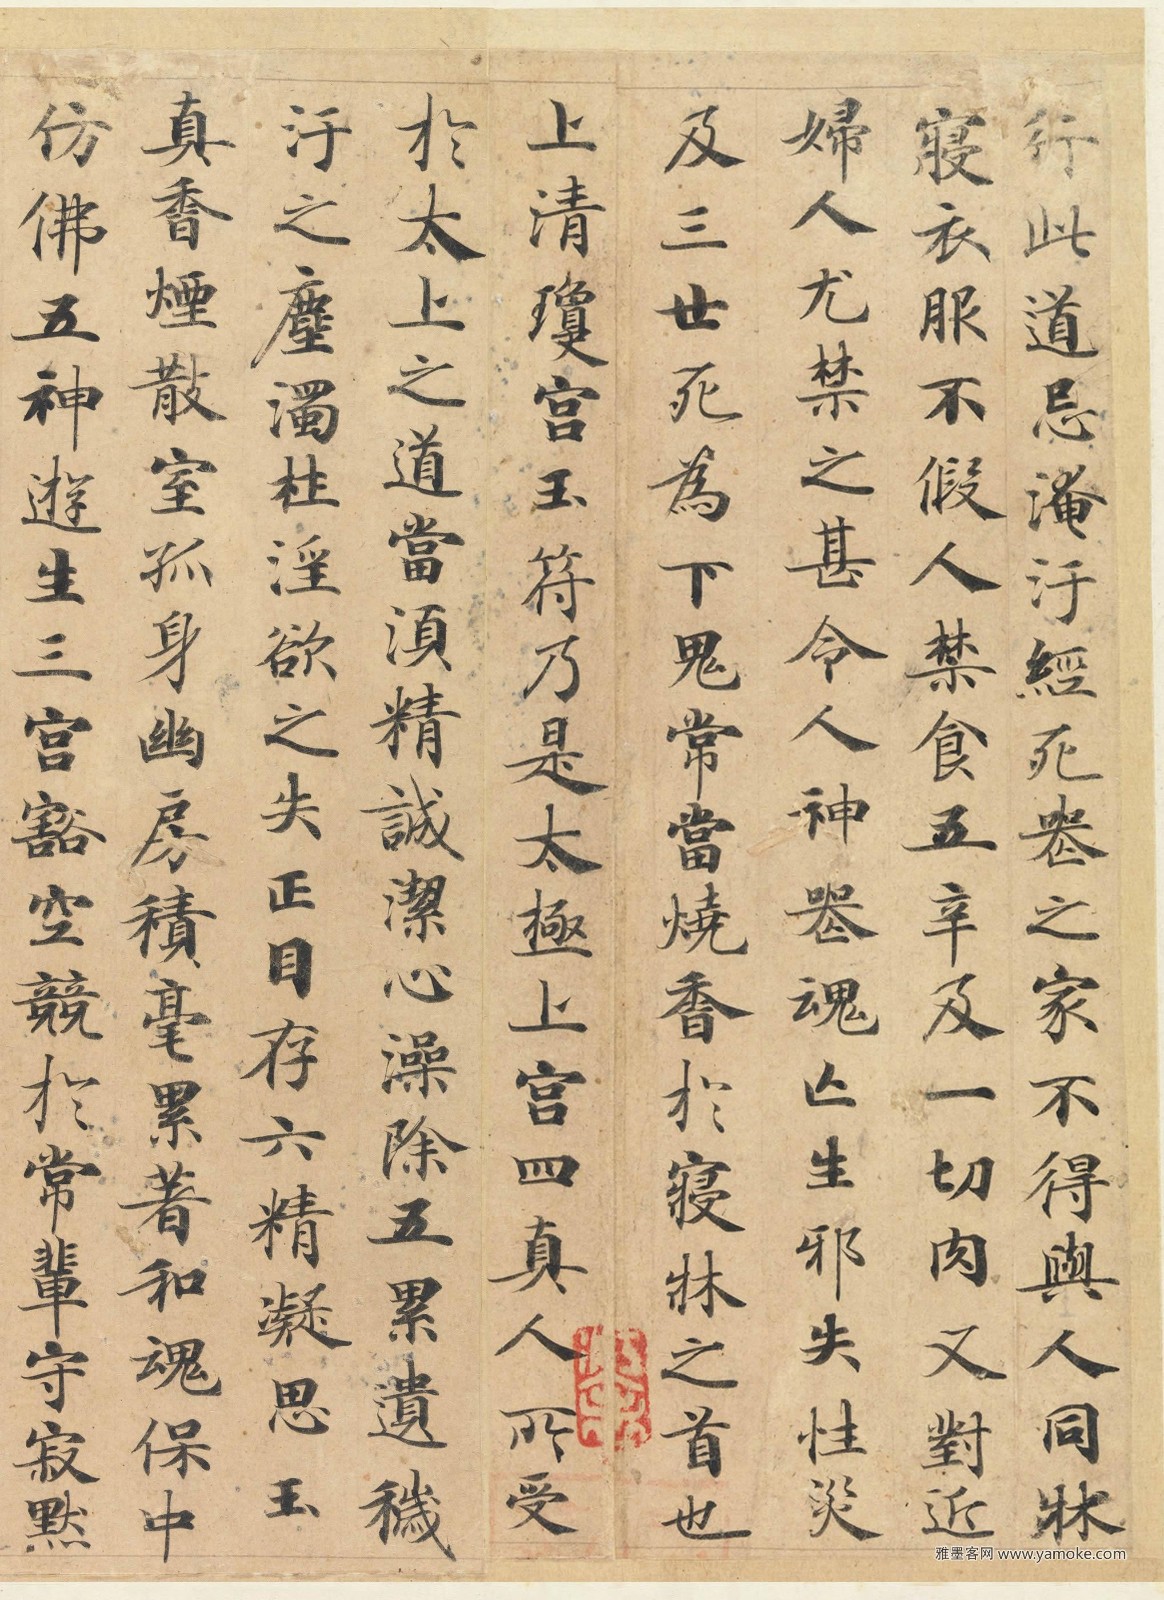 行此道忌淹汙經死喪之家不得與人同牀
寢衣服不假人禁食五辛及一切肉又對近
婦人尤禁之甚令人神喪魂亡生邪失性災
及三世死為下鬼常當燒香於寢牀之首也
上清瓊宮玉符乃是太極上宮四真人所受
於太上之道當須精誠潔心澡除五累遺穢
汙之塵濁杜淫欲之失正目存六精凝思玉
真香煙散室孤身幽房積毫累著和魂保中
仿佛五神遊生三宮豁空競於常輩守寂默
雅墨客网 www.yamoke.com